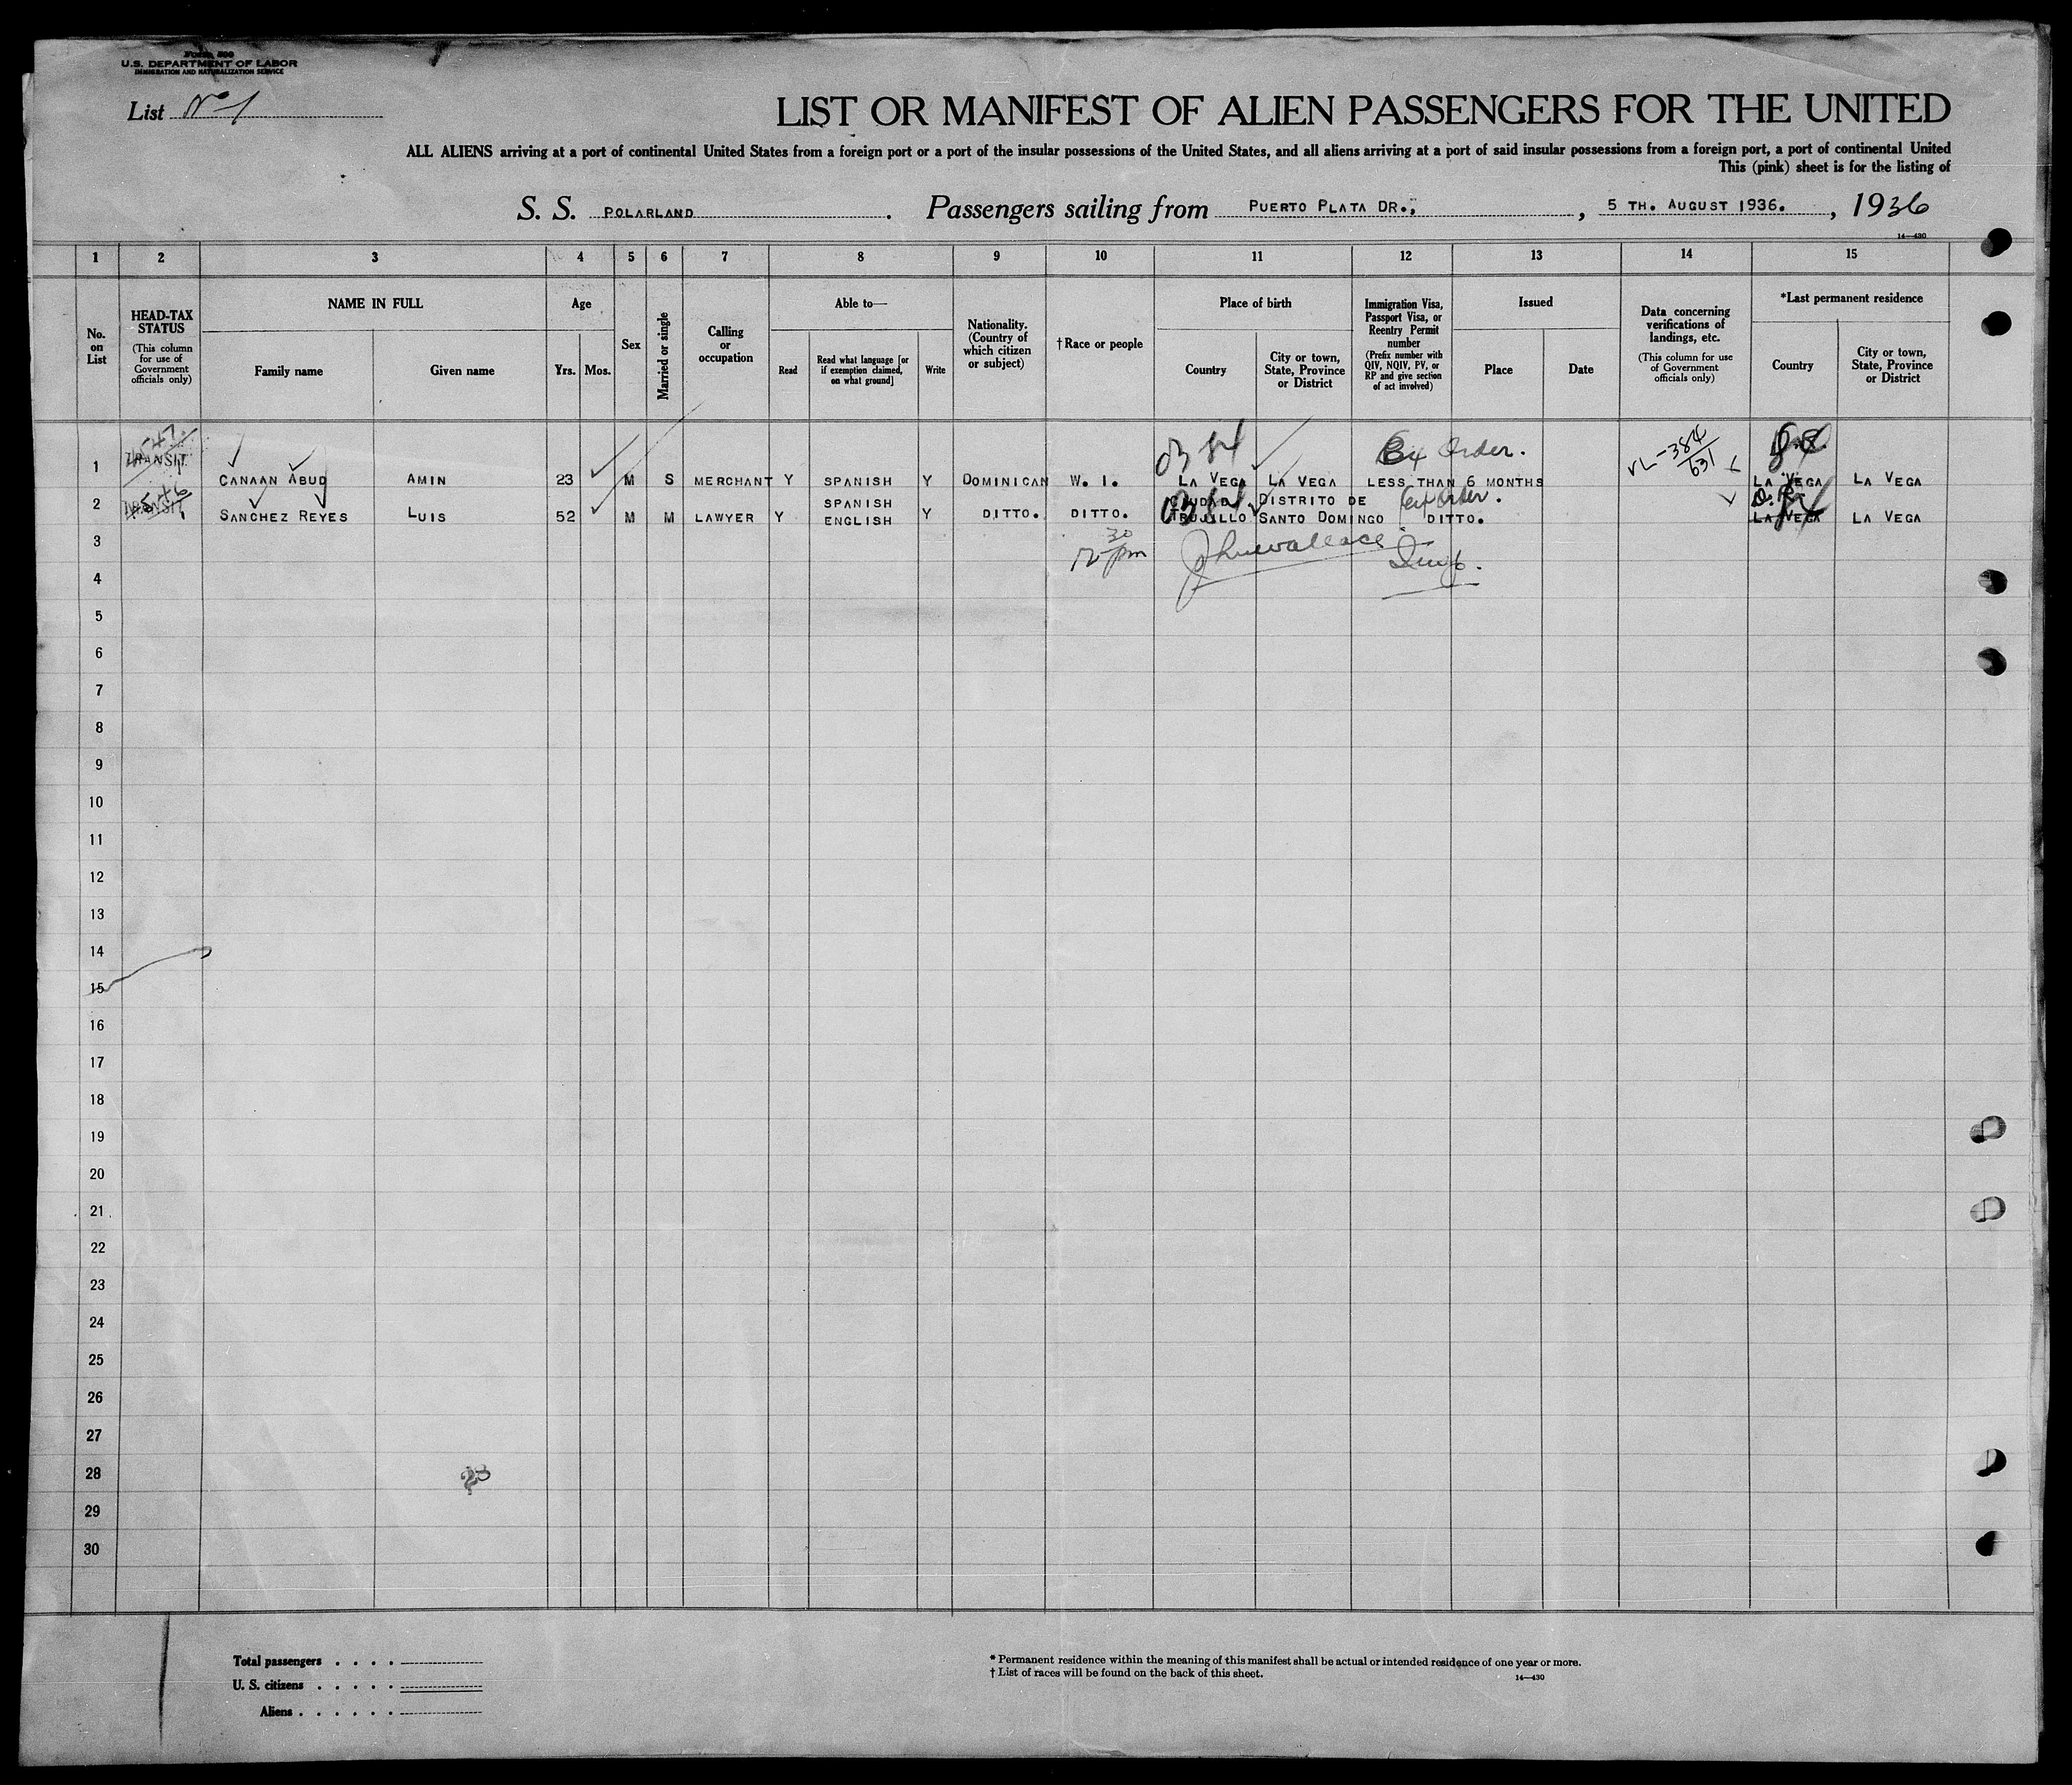 Form 500
U.S. DEPARTMENT OF LABOR
IMMIGRATION AND NATURALIZATION SERVICE
List No 1
LIST OR MANIFEST OF ALIEN PASSENGERS FOR THE UNITED
ALL ALIENS arriving at a port of continental United States from a foreign port or a port of the insular possessions of the United States, and all aliens arriving at a port of said insular possessions from a foreign port, a port of continental United
This (pink) sheet is for the listing of
S. S. POLARLAND. Passengers sailing from PUERTO PLATA DR., , 5 TH. AUGUST 1936. , 1936
14—430
1 2 3 4 5 6 7 8 9 10 11 12 13 14 15
No. on List
HEAD-TAX STATUS
(This column for use of Government officials only)
NAME IN FULL
Family name
Given name
Age
Yrs. Mos.
Sex
Married or single
Calling or occupation
Able to—
Read
Read what language [or if exemption claimed, on what ground]
Write
Nationality. (Country of which citizen or subject)
†Race or people
Place of birth
Country
City or town, State, Province or District
Immigration Visa, Passport Visa, or Reentry Permit number
(Prefix number with QIV, NQIV, PV, or RP and give section of act involved)
Issued
Place
Date
Data concerning verifications of landings, etc.
(This column for use of Government officials only)
*Last permanent residence
Country
City or town, State, Province or District
03 84 Ex Order. VL-384/631
1 TRANSIT CANAAN ABUD AMIN 23 M S MERCHANT Y SPANISH Y DOMINICAN W. I. LA VEGA LA VEGA LESS THAN 6 MONTHS LA VEGA LA VEGA
SPANISH CIUDAD DISTRITO DE Ex Order. D.R.
2 TRANSIT SANCHEZ REYES LUIS 52 M M LAWYER Y ENGLISH Y DITTO. DITTO. TRUJILLO SANTO DOMINGO DITTO. LA VEGA LA VEGA
3
12 30 pm Jhnwallace Insp.
4
5
6
7
8
9
10
11
12
13
14
15
16
17
18
19
20
21
22
23
24
25
26
27
28
29
30
Total passengers . . . .
U. S. citizens . . . . .
Aliens . . . . . .
* Permanent residence within the meaning of this manifest shall be actual or intended residence of one year or more.
† List of races will be found on the back of this sheet.
14—430